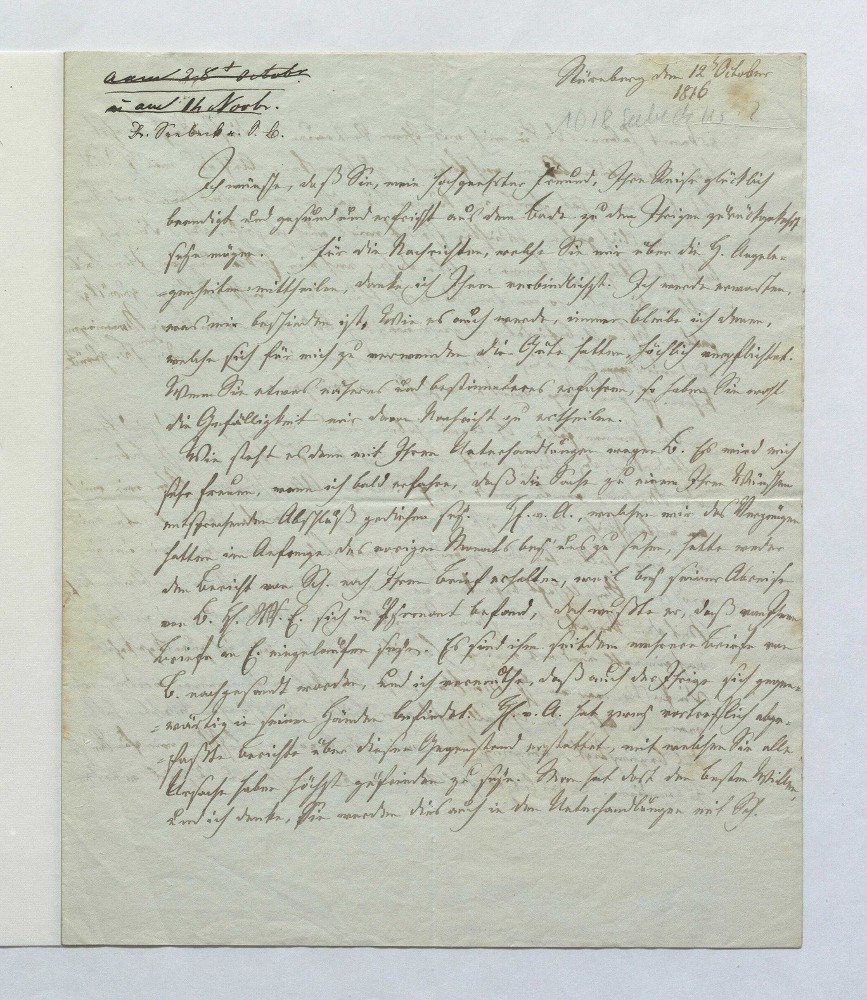 a am 28t Octobr.
u am 14 Novbr.
Dr. Seebeck a. S. B.
Nürnberg den 12t October
1816
1018 Seebeck
Ich wünsche, daß Sie, mein hochgeehrter Freund, Ihre Reise glücklich
beendigt und gesund und erfrischt aus dem Bade zu den Ihrigen zurückgekehrt
seyn mögen. Für die Nachrichten, welche Sie mir über die H. Angele-
genheiten mittheilen, danke ich Ihnen verbindlichst. Ich werde erwarten,
was mir beschieden ist. Wie es auch werde, immer bleibe ich denen,
welche sich für mich zu verwenden die Güte hatten, höchlich verpflichtet.
Wenn Sie etwas näheres und bestimmteres erfahren, so haben Sie wohl
die Gefälligkeit mir davon Nachricht zu ertheilen.
Wie steht es denn mit Ihren Unterhandlungen wegen B. Es wird mich
sehr freuen, wenn ich bald erfahre, daß die Sache zu einem Ihren Wünschen
entsprechenden Abschluß gediehen sey. H. v. A., welchen wir das Vergnügen
hatten im Anfange des vorigen Monats bey uns zu sehen, hatte weder
den Bericht von Sch. noch Ihren Brief erhalten, weil bey seiner Abreise
von B. H. M. E. sich in Pyrmont befand, doch wußte er, daß von Ihnen
Briefe an E. eingelaufen seyen. Es sind ihm seitdem mehrere Briefe von
B. nachgesandt worden, und ich vermuthe, daß auch der Ihrige sich gegen-
wärtig in seinen Händen befindet. H. v. A. hat zwey vortrefflich abge-
faßte Berichte über diesen Gegenstand erstattet, mit welchen Sie alle
Ursache haben höchst zufrieden zu seyn. Man hat dort den besten Willen,
und ich denke, Sie werden dies auch in den Unterhandlungen mit Sch.